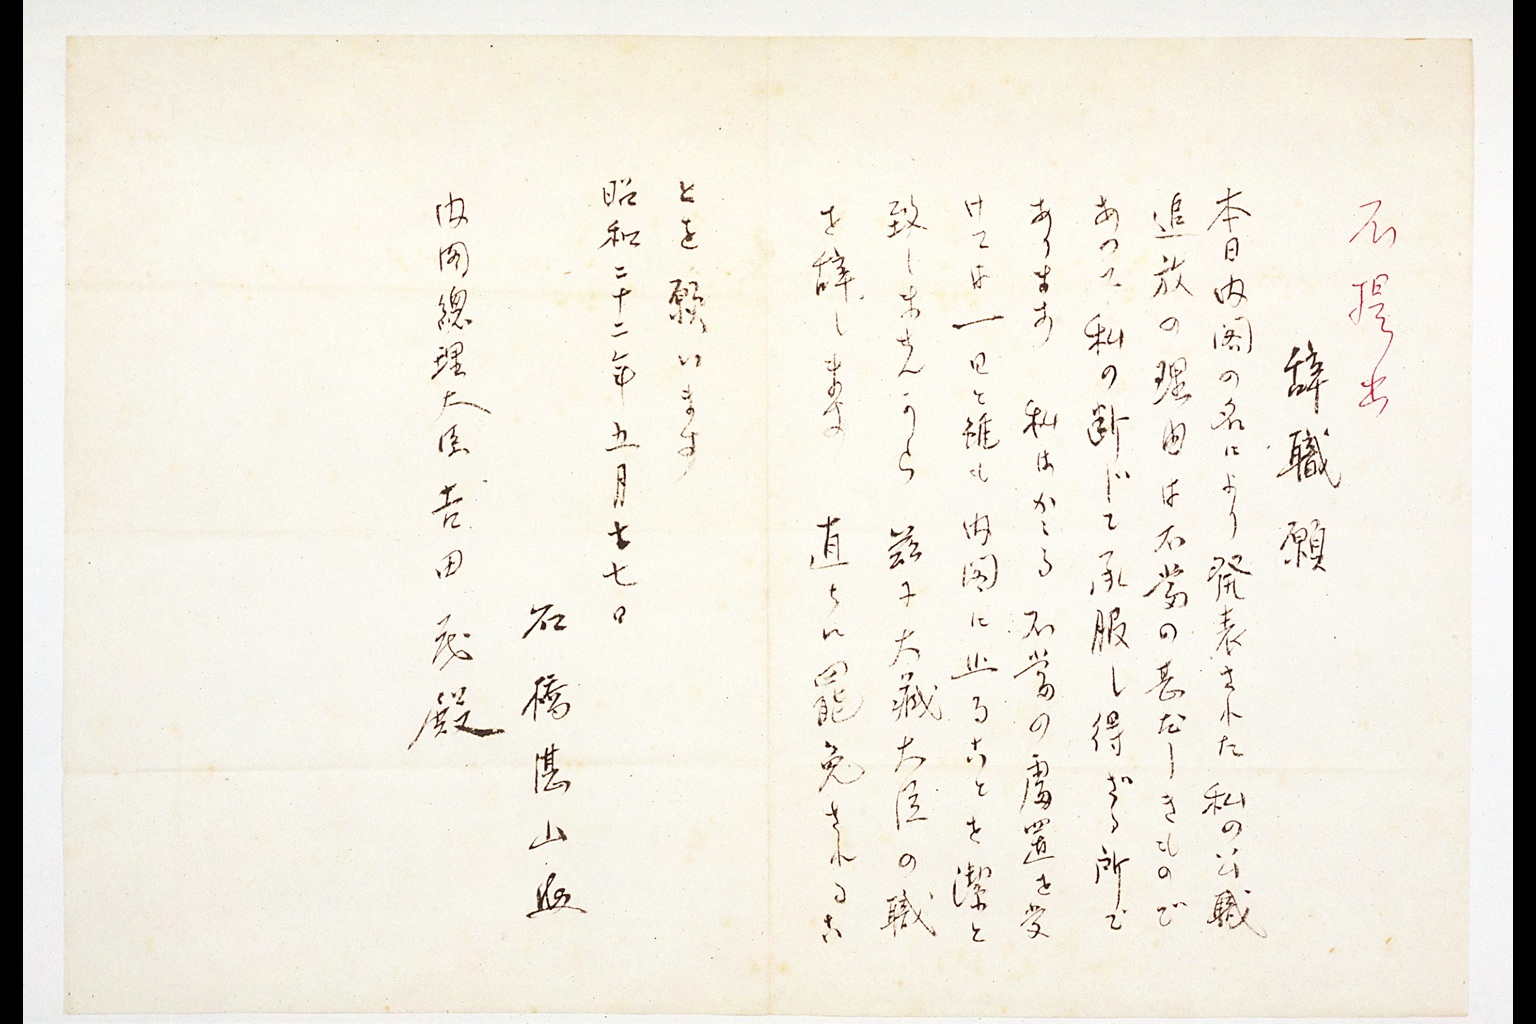 不提出
辞職願
本日内閣の名により発表された私の公職
追放の理由は不当の甚だしきもので
あつて私の断じて承服し得ざる所で
あります 私はかゝる不當の處置を受
けては一日と雖も内閣に止ることを潔と
致しませんから 茲に大藏大臣の職
を辞します 直ちに罷免されるこ
とを願います
昭和二十二年五月十七日
石橋湛山
内閣總理大臣吉田茂殿